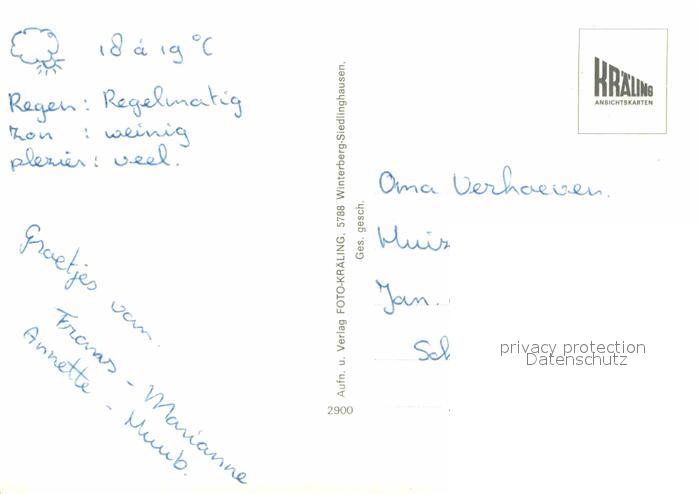 18 á 19 °C
Regen: Regelmatig
zon : weinig
plezier: veel.
Groetjes van.
Frans - Marianne
Annette - Huub.
Aufn. u. Verlag FOTO-KRÄLING, 5788 Winterberg-Siedlinghausen.
Ges. gesch.
2900
KRÄLING
ANSICHTSKARTEN
Oma Verhoeven.
Huiz
Jan.
Sch
privacy protection
Datenschutz